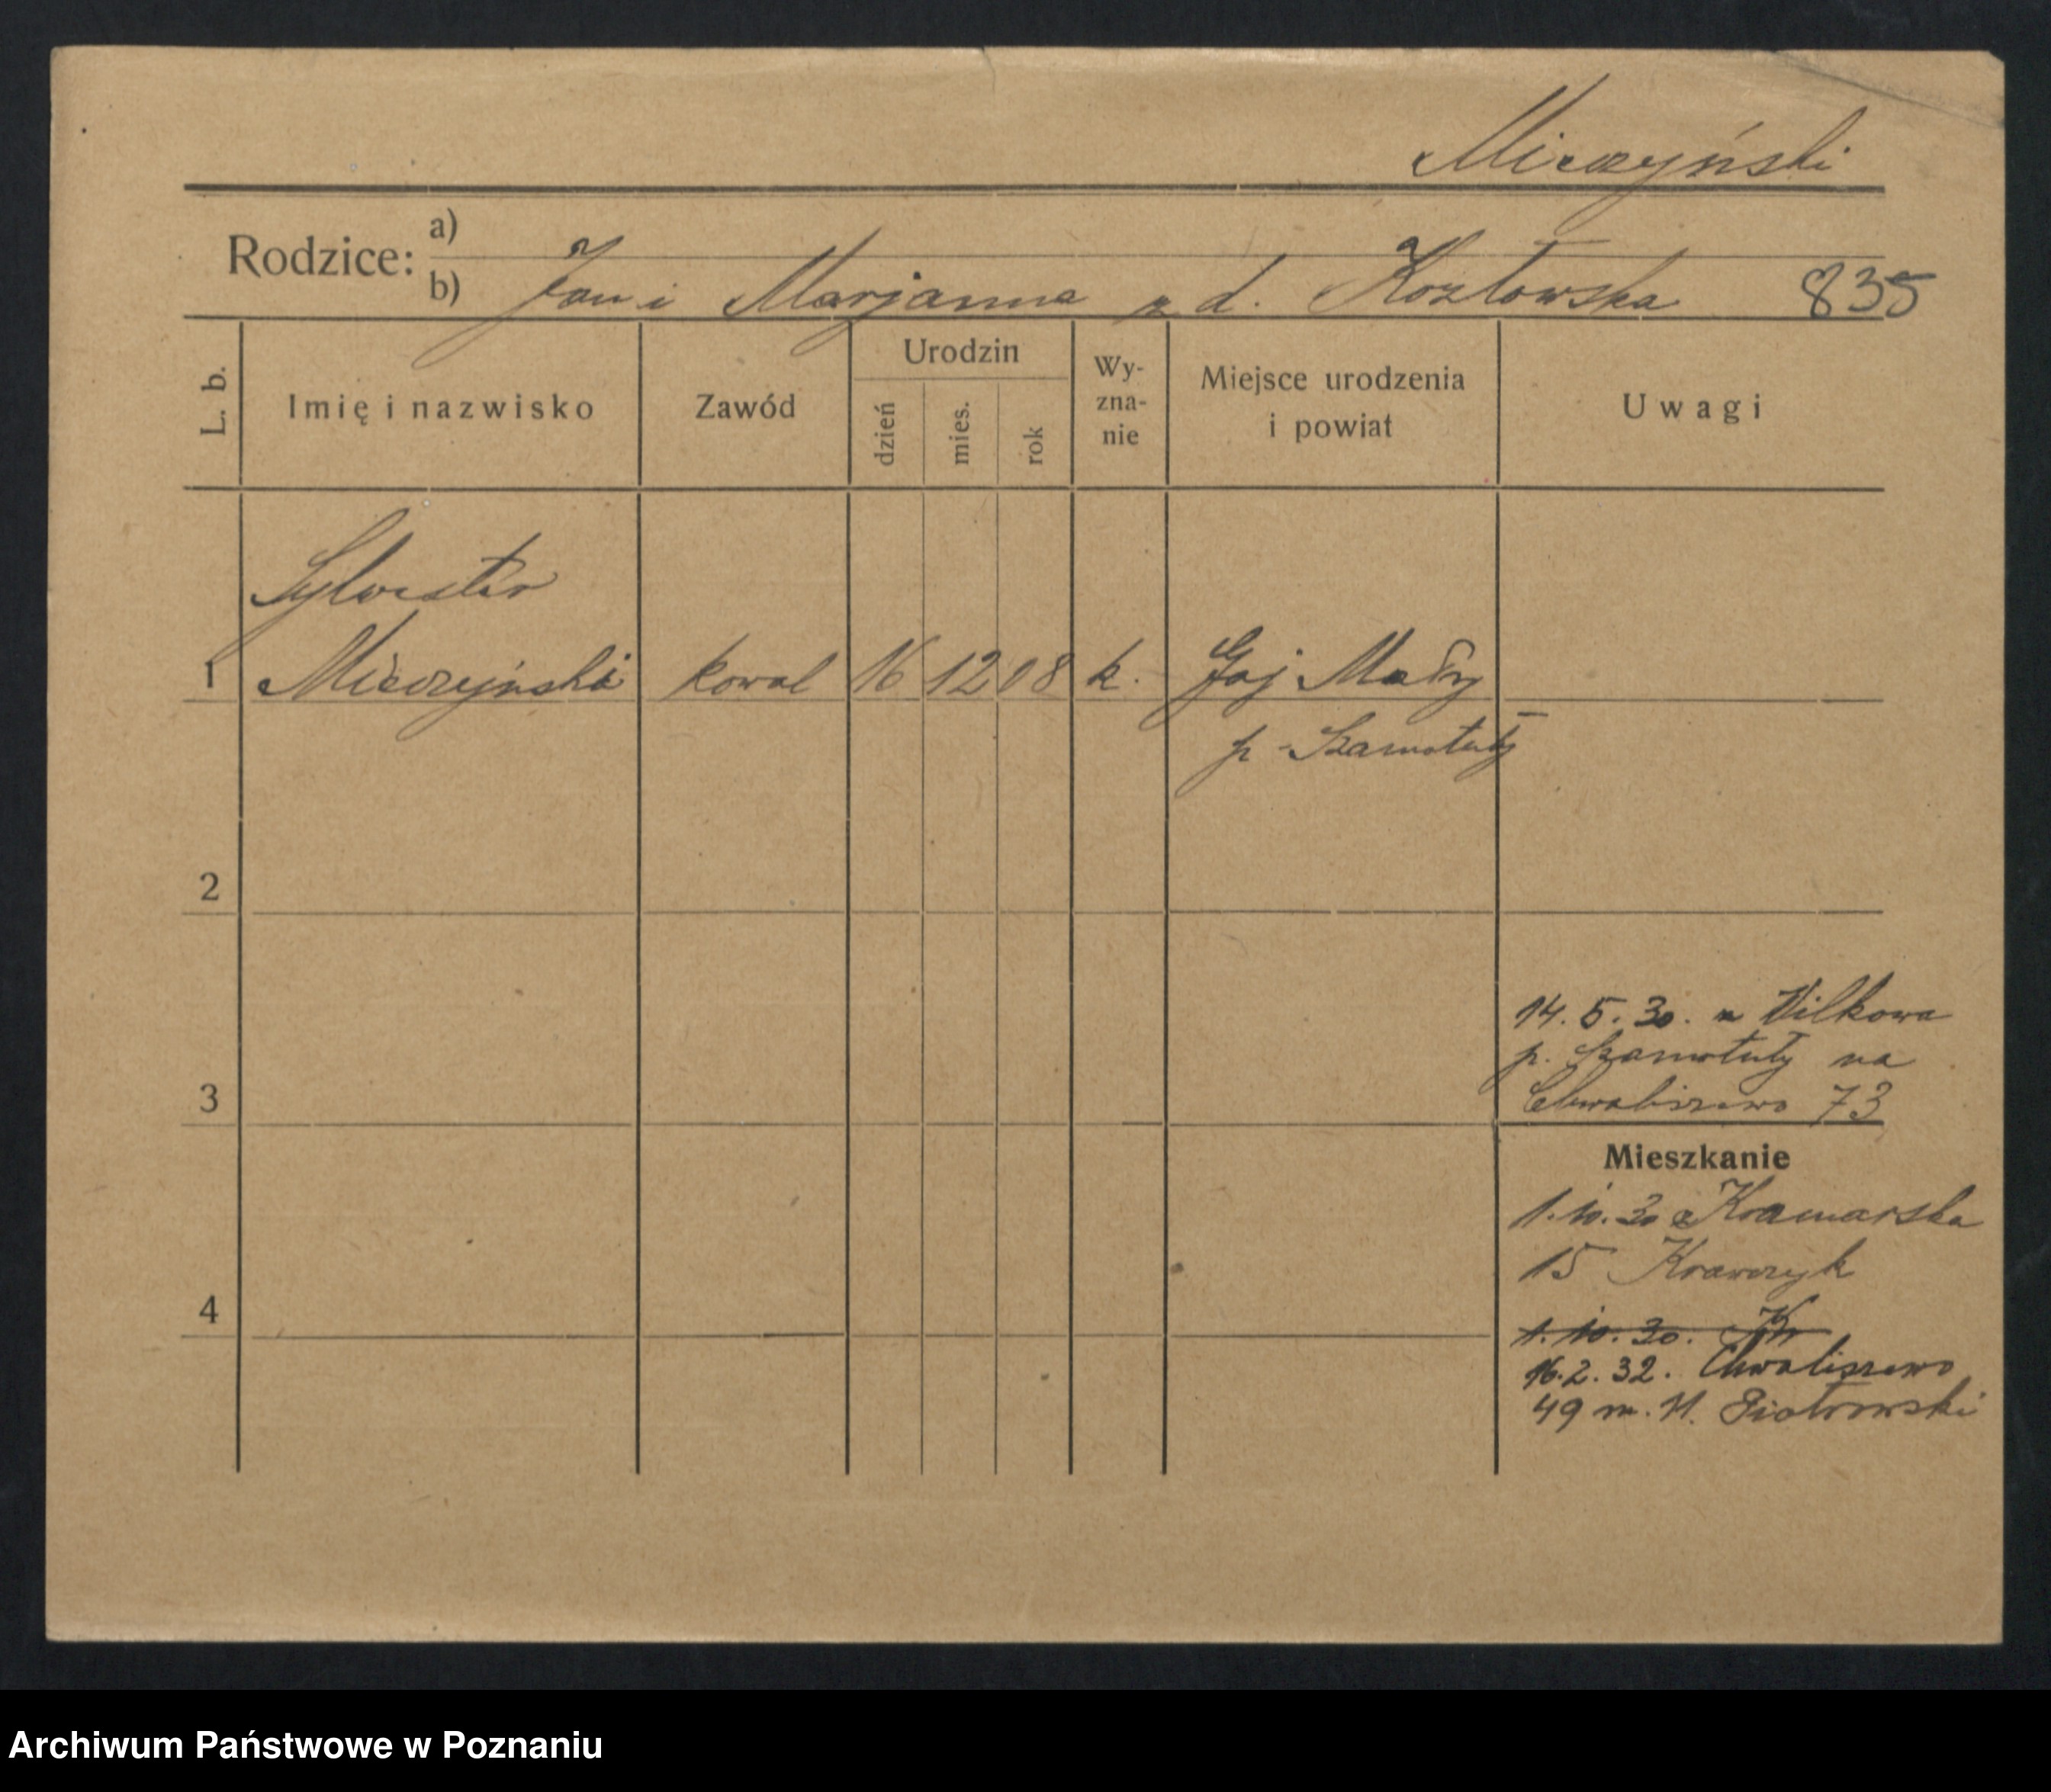 Mieczyński
Rodzice: a)
b) Jan i Marjanna z d. Kozłowska 835
L. b.
Imię i nazwisko
Zawód
Urodzin
dzień
mies.
rok
Wy-
zna-
nie
Miejsce urodzenia
i powiat
Uwagi
Sylwester
1 Mieczyński kowal 16 12 08 k. Gaj Mały
p. Szamotuły
2
14. 5. 30. z Wilkowa
p. Szamotuły na
3 Chwaliszewo 73
Mieszkanie
1. 10. 30 Kramarska
15 Krawczyk
4 1. 10. 30. Kr
16. 2. 32. Chwaliszewo
49 m. 11. Piotrowski
Archiwum Państwowe w Poznaniu